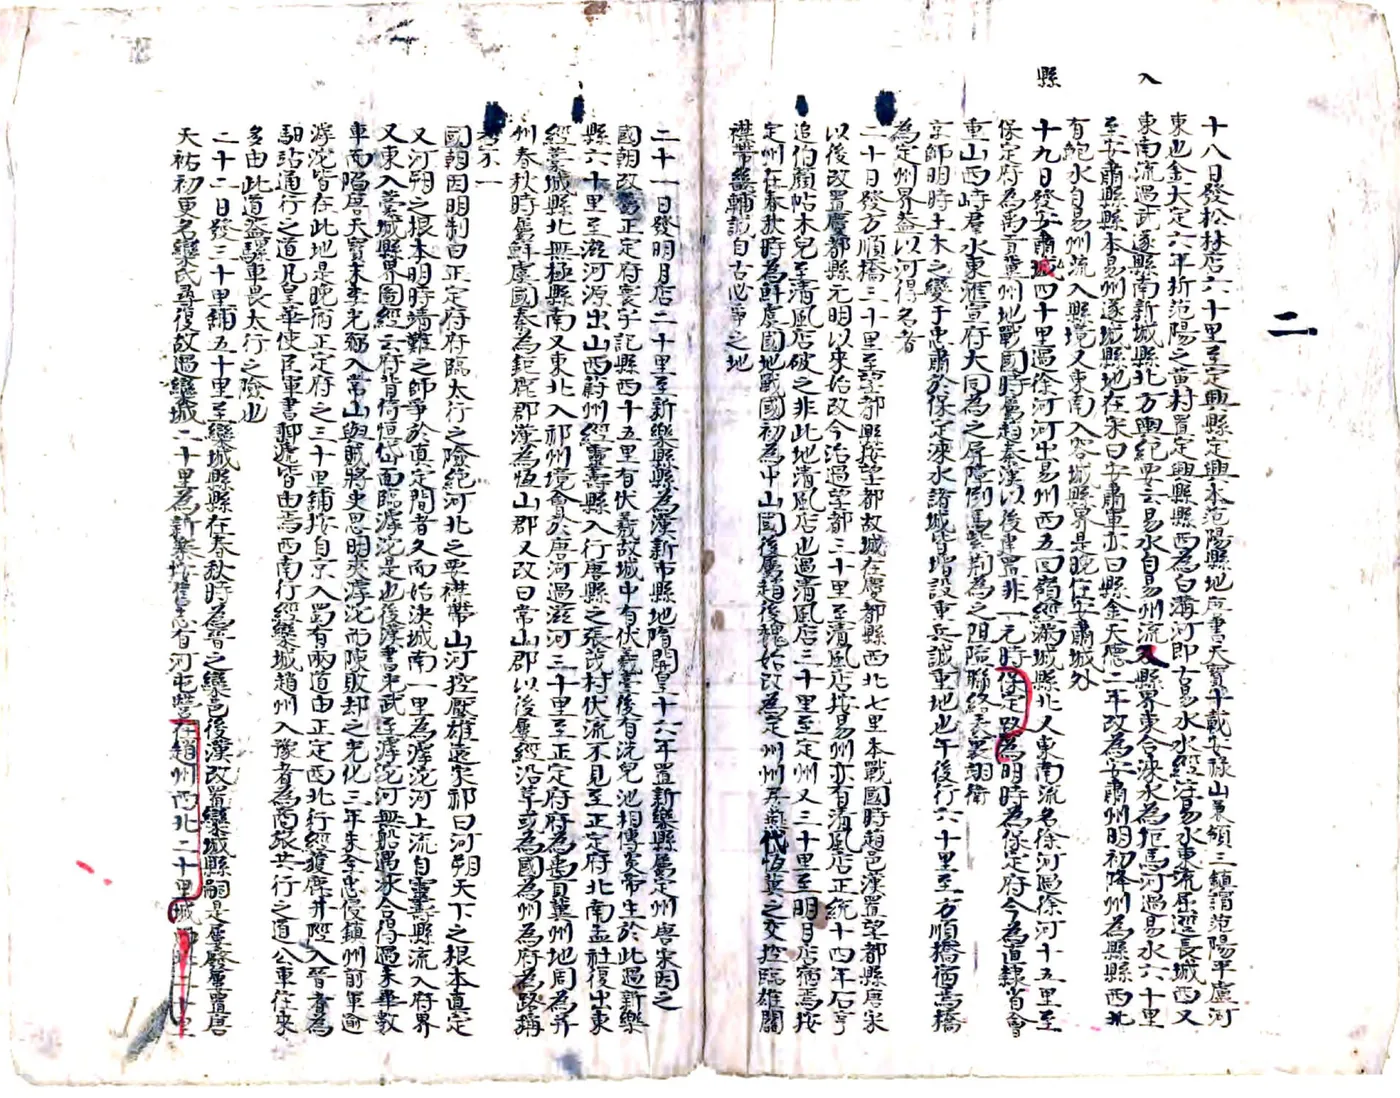 二
入
縣
十八日發松林店六十里至定興縣定興本范陽縣地唐書天寶十載安祿山兼領三鎮謂范陽平盧河
東也金大定六年折范陽之黄村置定興縣縣西為白溝河即古易水水經注易水東流屈逕長城西又
東南流過武遂縣南新城縣北方輿紀要云易水自易州流入縣界東合淶水為拒馬河過易水六十里
至安肅縣縣本易州遂城縣地在宋曰安肅軍亦曰縣金天德二年改為安肅州明初降州為縣縣西北
有鮑水自易州流入縣境又東南入容城縣界是晚住安肅城外
十九日發安肅城四十里過徐河河出易州西五回嶺經滿城縣北又東南流名徐河過徐河十五里至
保定府為禹貢冀州地戰國時屬趙秦漢以後建置非一元時保定路為明時為保定府今為直隸省會
重山西峙群水東滙宣府大同為之屏障倒馬紫荆為之阻阨聯絡表裏翊衛
京師明時土木之變于忠肅於保定淶水諸城皆增設重兵誠重地也午後行六十里至方順橋宿焉橋
為定州界蓋以河得名者
二十日發方順橋三十里至望都縣按望都故城在慶都縣西北七里本戰國時趙邑漢置望都縣唐宋
以後改置慶都縣元明以來始改今治過望都三十里至清風店按易州亦有清風店正統十四年石亨
追伯顏帖木兒至清風店破之非此地清風店也過清風店三十里至定州又三十里至明月店宿焉按
定州在春秋時為鮮虞國地戰國初為中山國後屬趙後魏始改為定州州居燕代恆冀之交控臨雄關
襟帶畿輔誠自古必爭之地
二十一日發明月店二十里至新樂縣縣為漢新市縣地隋開皇十六年置新樂縣屬定州唐宋因之
國朝改屬正定府寰宇記縣西十五里有伏羲故城中有伏羲臺後有洗兒池相傳羲帝生於此過新樂
縣六十里至滋河源出山西蔚州經靈壽縣入行唐縣之張茂村伏流不見至正定府北南孟社復出東
經藁城縣北無極縣南又東北入祁州境會於唐河過滋河三十里至正定府府為禹貢冀州地周為并
州春秋時屬鮮虞國秦為鉅鹿郡漢為恆山郡又改曰常山郡以後屢經沿革或為國為州為府為路稱
號不一
國朝因明制曰正定府府臨太行之險絶河北之要襟帶山河控壓雄遠宋祁曰河朔天下之根本真定
又河朔之根本明時靖難之師爭於真定間者久而始決城南一里為滹沱河上流自靈壽縣流入府界
又東入藁城縣界圖經云府背倚恒岱面臨滹沱是也後漢書光武至滹沱河無船遇冰合得過未畢數
車而陷唐天寶末李光弼入常山與賊將史思明夾滹沱而陳敗却之光化三年朱全忠侵鎮州前軍逾
滹沱皆在此地是晚宿正定府之三十里鋪按自京入蜀有兩道由正定西北行經獲鹿井陘入晉者為
馹站通行之道凡皇華使臣軍書郵遞皆由焉西南行經欒城趙州入豫者為商旅共行之道公車往來
多由此道蓋騾車畏太行之險也
二十二日發三十里鋪五十里至欒城縣縣在春秋時為晉之欒邑後漢改置欒城縣嗣是屢廢屢置唐
天祐初更名欒氏尋復故過欒城二十里為新寨按舊志有河屯營在趙州西北二十里城西北二十里